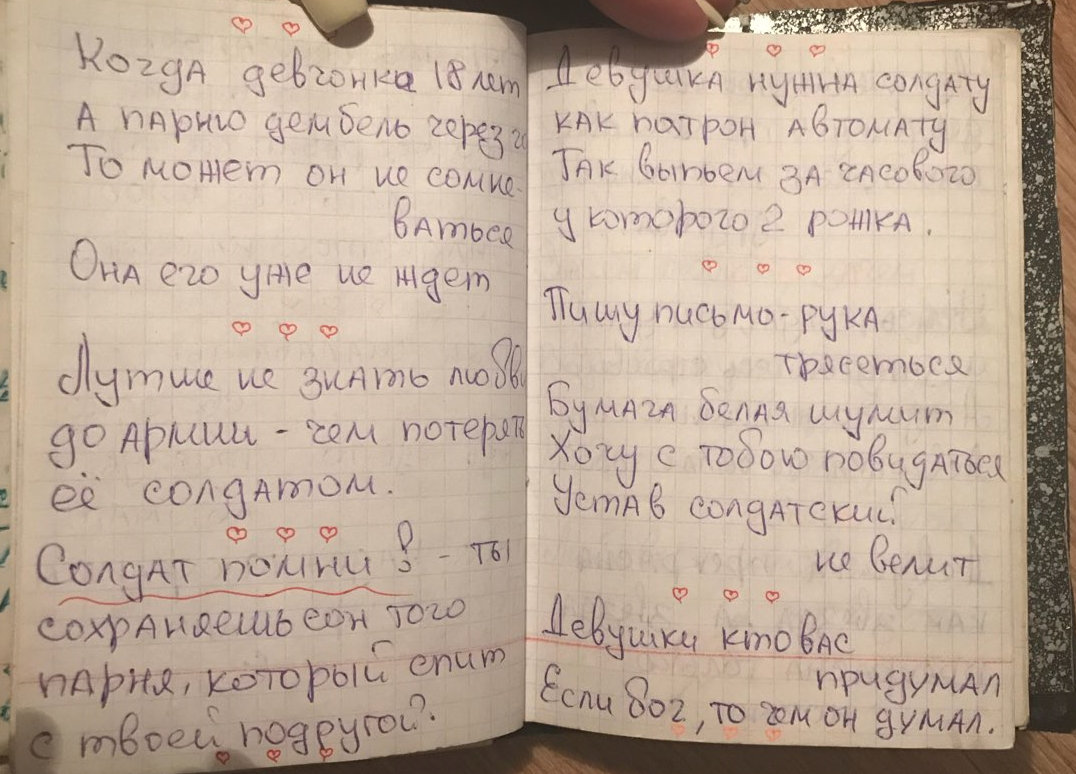 Когда девчонке 18 лет
А парню дембель через
То может он не сомне-
ваться
Она его уже не ждет
Лутше не знать любви
до армии - чем потерять
её солдатом.
Солдат помни! - ты
сохраняешь сон того
парня, который спит
с твоей подругой.
Девушка нужна солдату
как патрон автомату
Так выпьем за часового
у которого 2 рожка.
Пишу письмо - рука
трясеться
Бумага белая шумит
Хочу с тобою повидаться
Устав солдатский
не велит
Девушки кто вас
придумал
Если бог, то чем он думал.